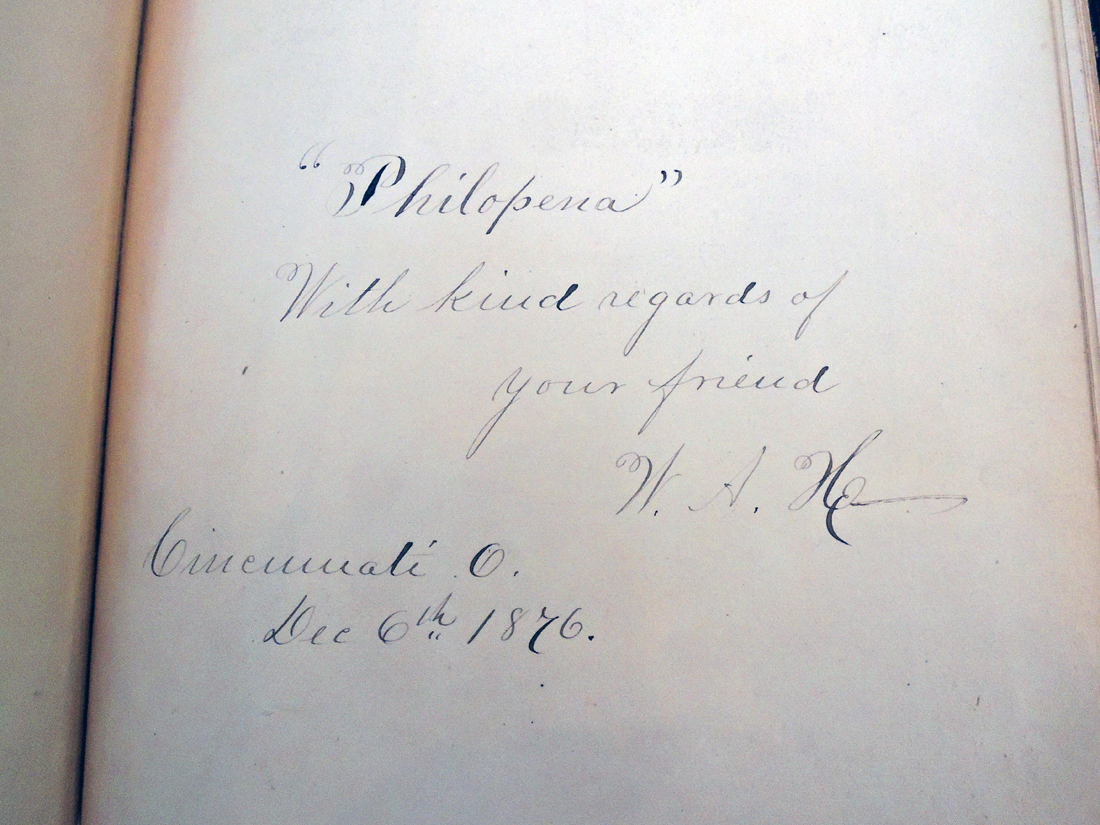 “Philopena”
With kind regards of
your friend
W. A. H
Cincinnati O.
Dec 6th 1876.